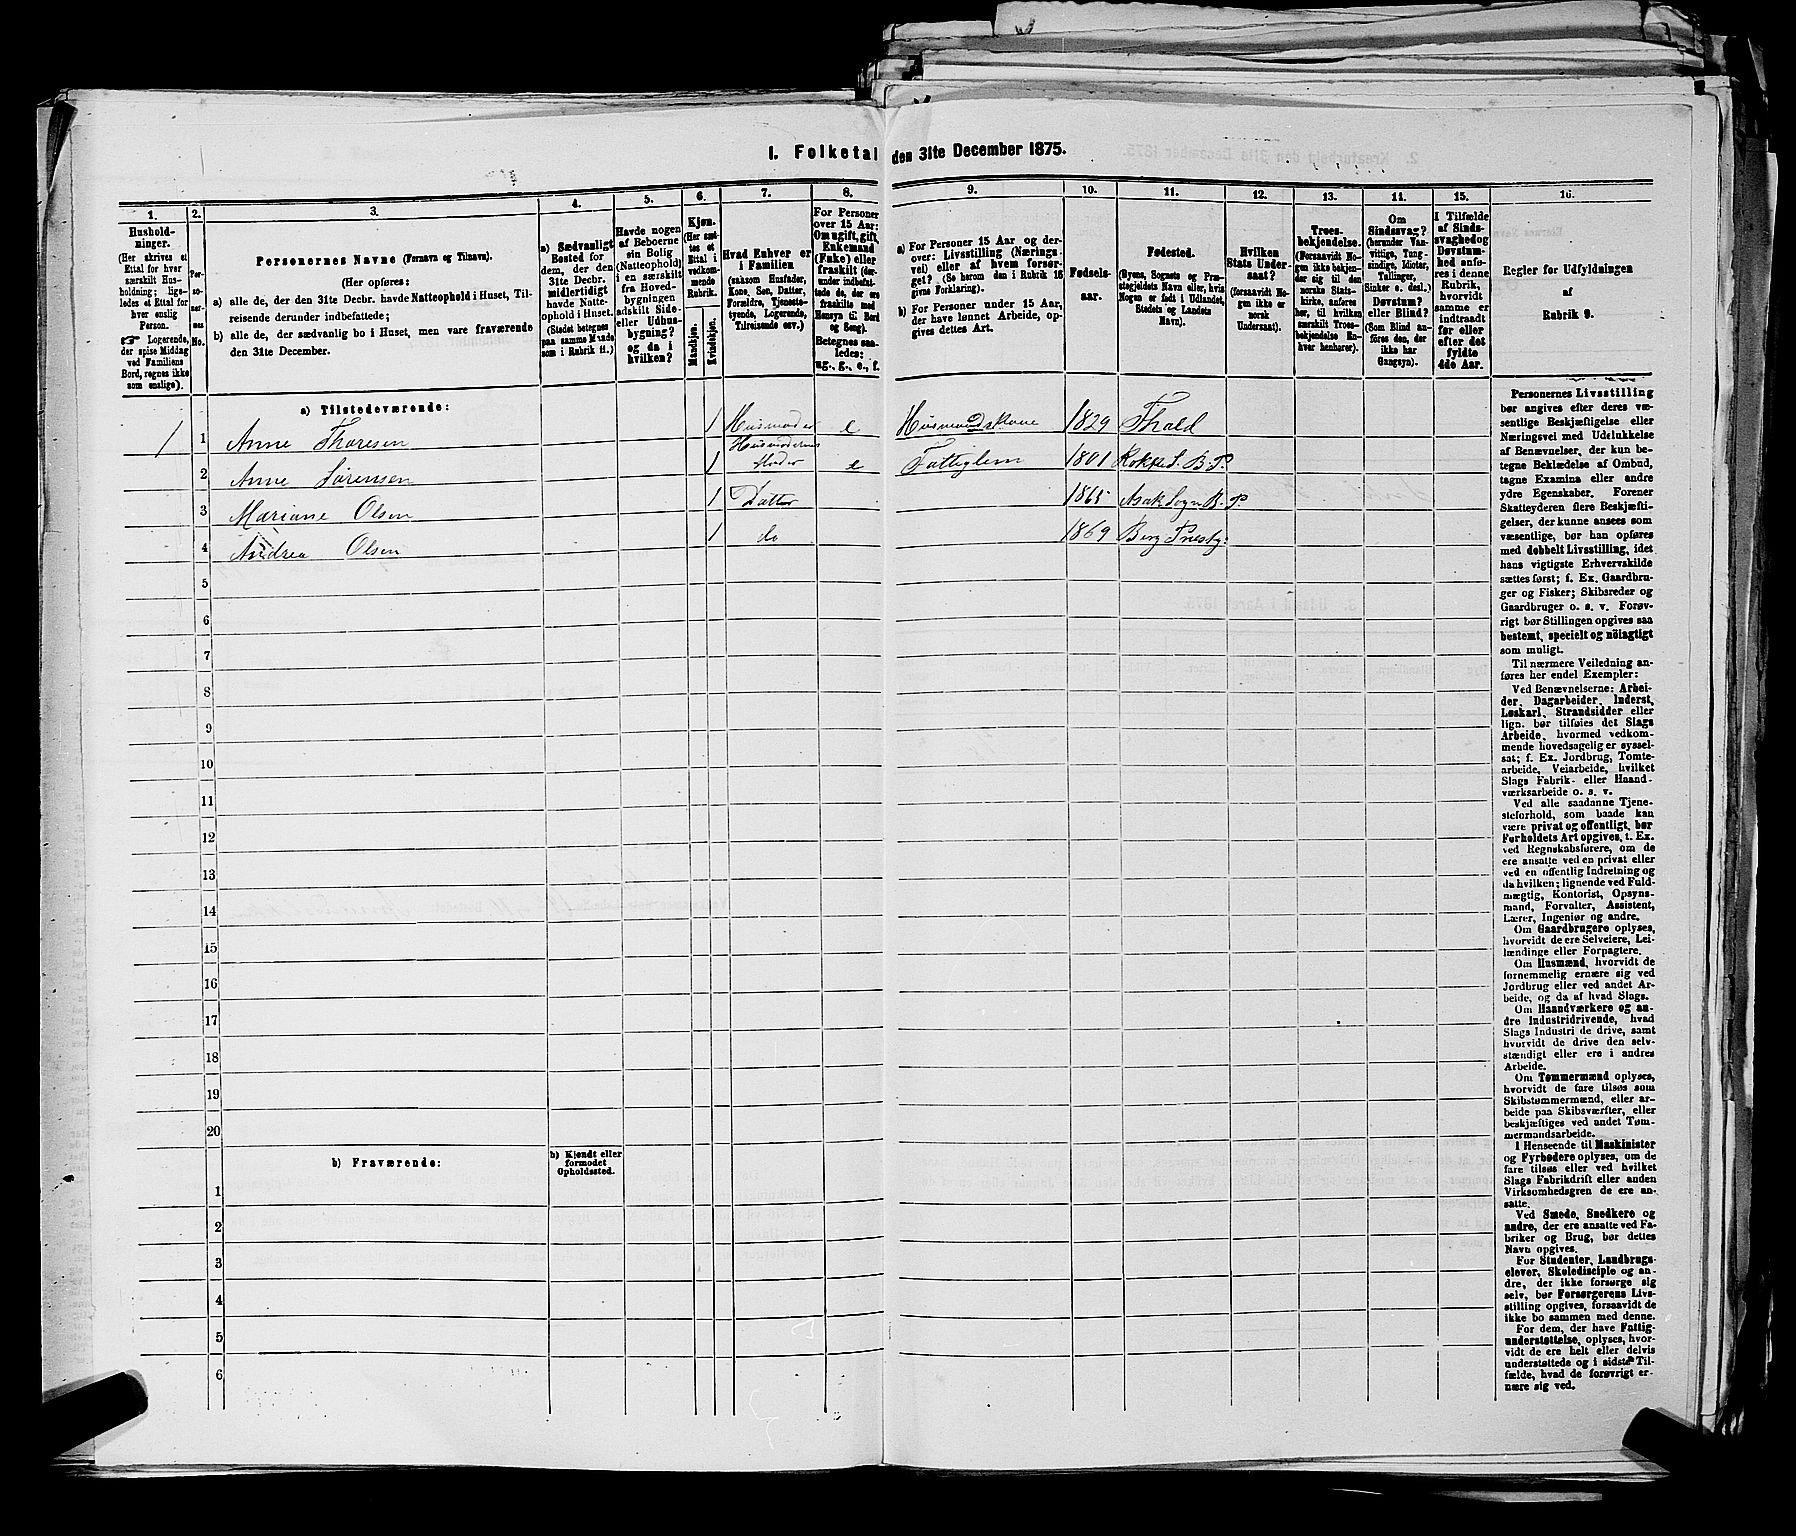 I. Folketal den 31te December 1875.
1.
2.
3.
4.
5.
6.
7.
8.
9.
10.
11.
12.
13.
14.
15.
16.
Husholdninger.
(Her skrives et
Ettal for hver
særskilt Husholdning; ligeledes
et Ettal for
hver enslig
Person.
☛ Logerende,
der spise Middag
ved Familiens
Bord, regnes ikke
som enslige).
Personernes
No.
Personernes Navne (Fornavn og Tilnavn).
(Her opføres:
a) alle de, der den 31te Decbr. havde Natteophold i Huset, Tilreisende
derunder indbefattede;
b) alle de, der sædvanlig bo i Huset, men vare fraværende
den 31te December.
a) Sædvanligt
Bosted for
dem, der den
31te Decbr.
midlertidigt
havde Natteophold
i Huset.
(Stedet betegnes
paa samme Maade
som i Rubrik 11.)
Havde nogen
af Beboerne
sin Bolig
(Natteophold)
i en særskilt
fra Hovedbygningen
adskilt Side-
eller Udhusbygning?
og da i
hvilken?
Kjøn.
(Her sættes
et
Ettal i
vedkommende
Rubrik.
Mandkjøn.
Kvindekjøn.
Hvad Enhver er
i Familien
(saasom Husfader,
Kone, Søn, Datter,
Forældre, Tjenestetyende,
Logerende,
Tilreisende osv.)
For Personer
over 15 Aar:
Om ugift, gift,
Enkemand
(Enke) eller
fraskilt
Betegnes saaledes:
ug., g., e., f.
a) For Personer 15 Aar og derover:
Livsstilling (Næringsvei)
eller af hvem forsørget?
(Se herom den i Rubrik 16
givne Forklaring).
b) For Personer under 15 Aar,
der have lønnet Arbeide, opgives
dettes Art.
Fødselsaar.
Fødested.
(Byens, Sognets og Præstegjeldets
Navn eller, hvis
Nogen er født i Udlandet,
Stedets og Landets
Navn).
Hvilken
Stats Undersaat?
(forsaavidt Nogen
ikke er
norsk
Undersaat).
Troesbekjendelse.
(Forsaavidt Nogen
ikke bekjender
sig til den
norske Statskirke,
anføres
her, til hvilken
særskilt Troesbekjendelse
Enhver
henhører).
Om
Sindssvag?
(herunder Vanvittige,
Tungsindige,
Idioter,
Tullinger,
Sinker o. desl.)
Døvstum?
eller Blind?
(Som Blind anføres
den, der
ikke har
Gangsyn).
I Tilfælde
af Sindssvaghed
og
Døvstumhed
anføres
i denne
Rubrik,
hvorvidt
samme er
indtraadt
før eller
efter det
fyldte
4de Aar.
Regler for Udfyldningen
af
Rubrik 9.
a) Tilstedeværende:
1 1 Anne Thoresen 1 Husmoder e Husmandskone 1829
2 Anne Sørensen 1 Husmoderens Moder e Fattiglem 1801 Rokke S. B. P.
3 Mariane Olsen 1 Datter 1865 Asak Sogn B. P.
4 Andrea Olsen 1 do 1869 Berg Præstg:
5
6
7
8
9
10
11
12
13
14
15
16
17
18
19
20
b) Fraværende:
b) Kjendt eller
formodet
Opholdssted.
1
2
3
4
5
6
Personernes Livsstilling
bør angives efter deres væsentlige
Beskjæftigelse eller
Næringsvei med Udelukkelse
af Benævnelser, der kun betegne
Beklædelse af Ombud,
tagne Examina eller andre
ydre Egenskaber. Forener
Skatteyderen flere Beskjæftigelser,
der kunne ansees som
væsentlige, bør han opføres
med dobbelt Livsstilling, idet
hans vigtigste Erhvervskilde
sættes først; f. Ex. Gaardbruger
og Fisker; Skibsreder og
Gaardbruger o. s. v. Forøvrigt
bør Stillingen opgives saa
bestemt, specielt og nöiagtigt
som muligt.
Til nærmere Veiledning anføres
her endel Exempler:
Ved Benævnelserne: Arbeider,
Dagarbeider, Inderst,
Løskarl, Strandsidder eller
lign. bør tilføies det Slags
Arbeide, hvormed vedkommende
hovedsagelig er sysselsat;
f. Ex. Jordbrug, Tomtearbeide,
Veiarbeide, hvilket
Slags Fabrik- eller Haandværksarbeide
o. s. v.
Ved alle saadanne Tjenesteforhold,
som baade kan
være privat og offentligt, bør
Forholdets Art opgives, t. Ex.
ved Regnskabsførere, om de
ere ansatte ved en privat eller
ved en offentlig Indretning og
da hvilken; lignende ved Fuldmægtig,
Kontorist, Opsynsmand,
Forvalter, Assistent,
Lærer, Ingeniør og andre.
Om Gaardbrugere oplyses,
hvorvidt de ere Selveiere, Leilændinge
eller Forpagtere.
Om Husmænd, hvorvidt de
fornemmelig ernære sig ved
Jordbrug eller ved andet Arbeide,
og da af hvad Slags.
Om Haandværkere og andre
Industridrivende, hvad
Slags Industri de drive, samt
hvorvidt de drive den selvstændigt
eller ere i andres
Arbeide.
Om Tømmermænd oplyses,
hvorvidt de fare tilsøs som
Skibstømmermænd, eller arbeide
paa Skibsværfter, eller
beskjæftiges ved andet Tømmermandsarbeide.
I Henseende til Maskinister
og Fyrbødere oplyses, om de
fare tilsøs eller ved hvilket
Slags Fabrikdrift eller anden
Virksomhedsgren de ere ansatte.
Ved Smede, Snedkere og
andre, der ere ansatte ved Fabriker
og Brug, bør dettes
Navn opgives.
For Studenter, Landbrugselever,
Skoledisciple og andre,
der ikke forsørge sig
selv, bør Forsørgerens Livsstilling
opgives, forsaavidt de
ikke bo sammen med denne.
For dem, der have Fattigunderstøttelse,
oplyses, hvorvidt
de ere helt eller delvis
understøttede og i sidste Tilfælde,
hvad de forøvrigt ernære
sig ved.